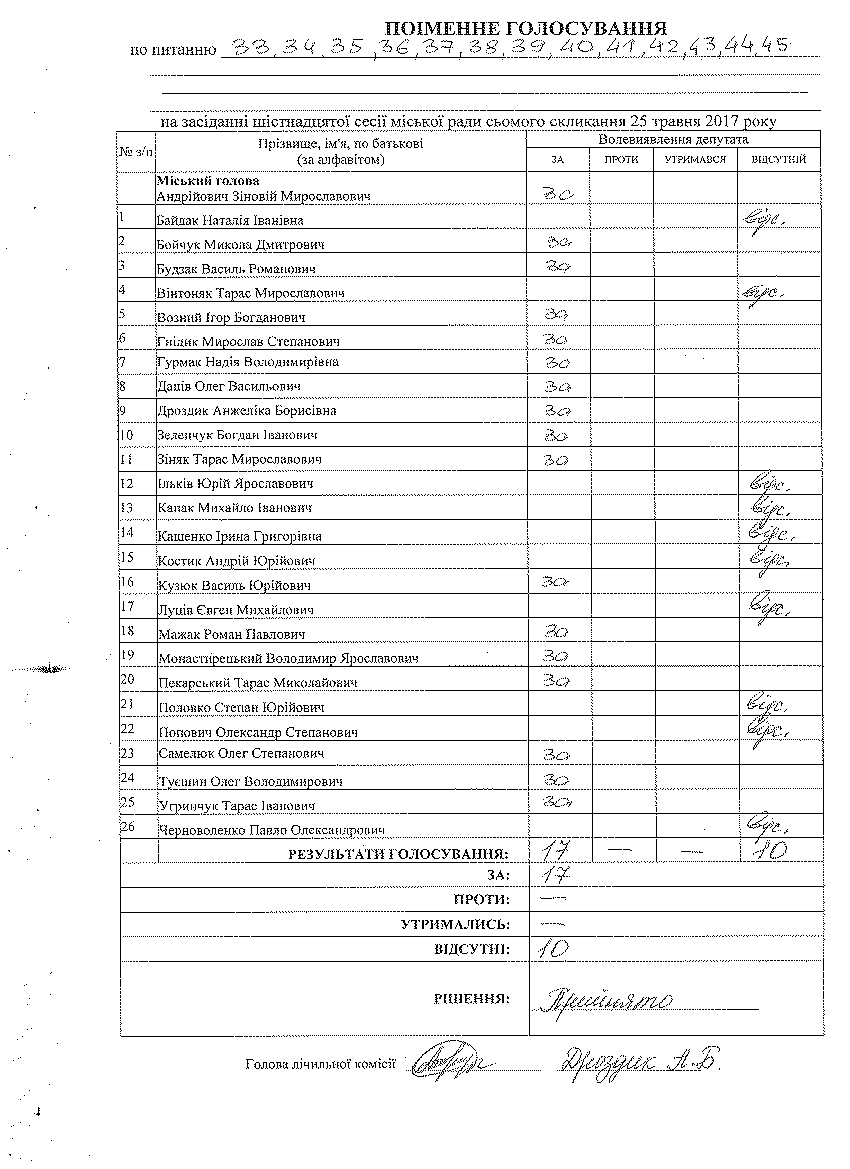 ПОІМЕННЕ ГОЛОСУВАННЯ
по питанню 33, 34, 35, 36, 37, 38, 39, 40, 41, 42, 43, 44, 45
на засіданні шістнадцятої сесії міської ради сьомого скликання 25 травня 2017 року
№ з/п Прізвище, ім'я, по батькові (за алфавітом) Волевиявлення депутата
ЗА ПРОТИ УТРИМАВСЯ ВІДСУТНІЙ
Міський голова
Андрійович Зіновій Мирославович за
1 Байдак Наталія Іванівна відс.
2 Бойчук Микола Дмитрович за
3 Будзак Василь Романович за
4 Вінтоняк Тарас Мирославович відс.
5 Возний Ігор Богданович за
6 Гнідик Мирослав Степанович за
7 Гурмак Надія Володимирівна за
8 Даців Олег Васильович за
9 Дроздик Анжеліка Борисівна за
10 Зеленчук Богдан Іванович за
11 Зіняк Тарас Мирославович за
12 Ільків Юрій Ярославович відс.
13 Капак Михайло Іванович відс.
14 Кащенко Ірина Григорівна відс.
15 Костик Андрій Юрійович відс.
16 Кузюк Василь Юрійович за
17 Луців Євген Михайлович відс.
18 Мажак Роман Павлович за
19 Монастирецький Володимир Ярославович за
20 Пекарський Тарас Миколайович за
21 Половко Степан Юрійович відс.
22 Попович Олександр Степанович відс.
23 Самелюк Олег Степанович за
24 Туєшин Олег Володимирович за
25 Угринчук Тарас Іванович за
26 Черноволенко Павло Олександрович відс.
РЕЗУЛЬТАТИ ГОЛОСУВАННЯ: 17 — — 10
ЗА: 17
ПРОТИ: —
УТРИМАЛИСЬ: —
ВІДСУТНІ: 10
РІШЕННЯ: Прийнято
Голова лічильної комісії Дроздик А.Б.